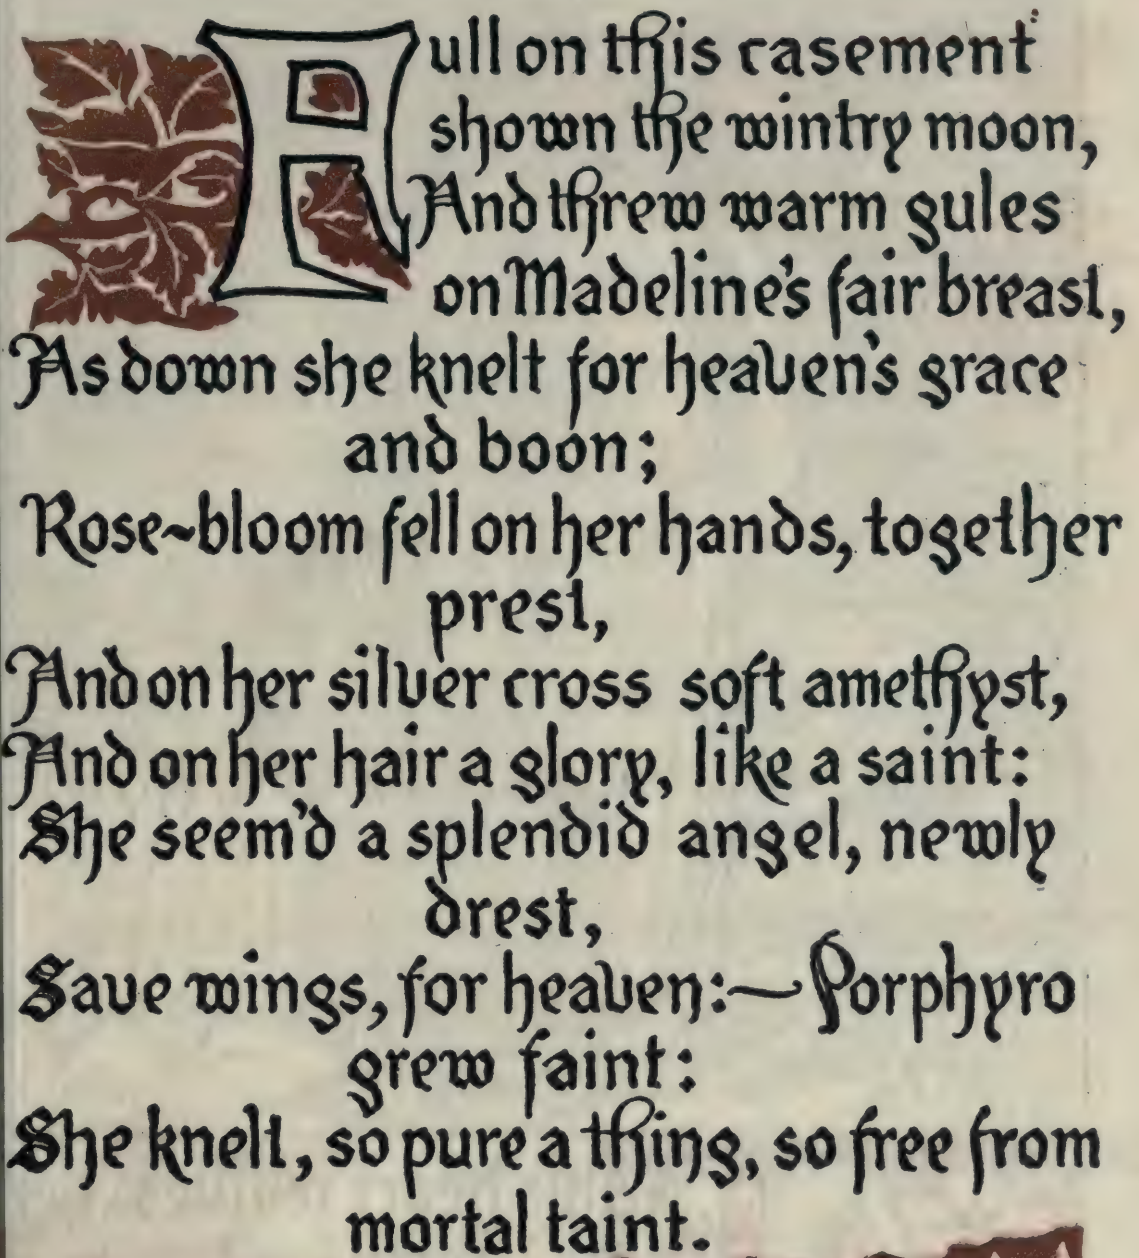 Full on this casement
shown the wintry moon,
And threw warm gules
on Madeline's fair breast,
As down she knelt for heaven's grace
and boon;
Rose-bloom fell on her hands, together
prest,
And on her silver cross soft amethyst,
And on her hair a glory, like a saint:
She seem'd a splendid angel, newly
drest,
Save wings, for heaven:—Porphyro
grew faint:
She knelt, so pure a thing, so free from
mortal taint.